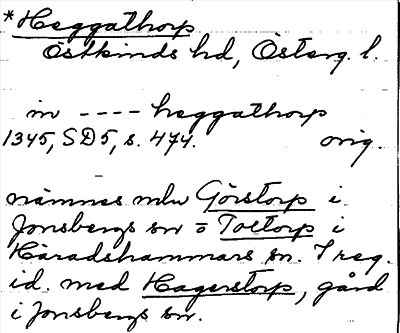 *Heggathorp
Östkinds hd, Österg. l.
in ---- heggathorp
1345, SD5, s. 474. orig.
nämnes mlw Görstorp i
Jonsbergs sn o Toetorp i
Häradshammars sn. I reg.
id. med Hagerstorp, gård
i Jonsbergs sn.